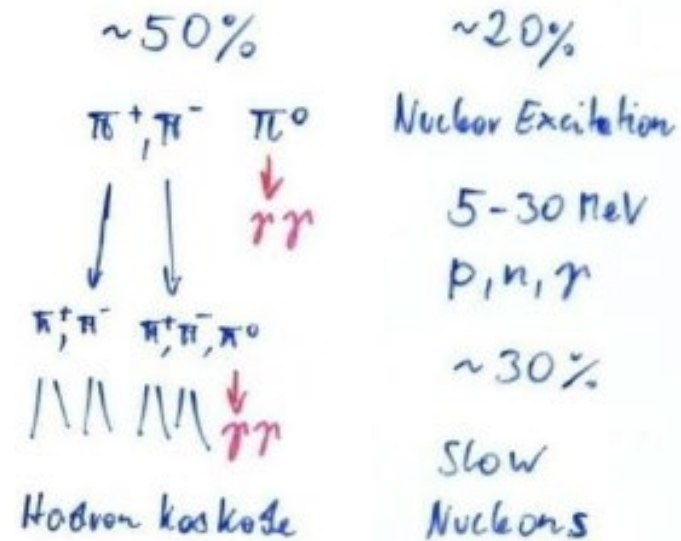 ~50%
π⁺, π⁻ π⁰
γγ
π⁺, π⁻ π⁺, π⁻, π⁰
γγ
Hadron Kaskade
~20%
Nuclear Excitation
5-30 MeV
p, n, γ
~30%
Slow
Nucleons